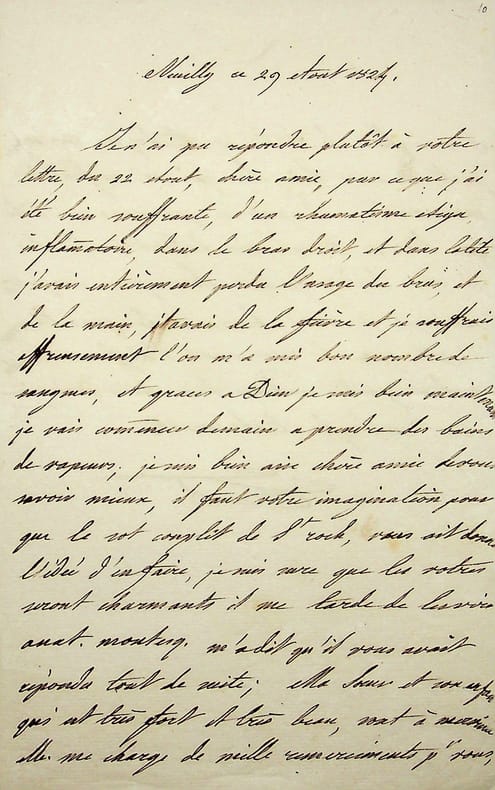 10
Neuilly ce 29 Aout 1824.
Je n'ai pu répondre plutôt à votre
lettre, du 22 Aout, chère amie, par ce que j'ai
été bien souffrante, d'un rhumatisme
inflamatoire, dans le bras droit, et dans la tête
j'avais entièrement perdu l'usage du bras, et
de la main, j'avais de la fièvre et je souffrais
affreusement l'on m'a mis bon nombre de
sangsues, et graces a Dieu je suis bien maintenant
je vais commencer demain a prendre des bains
de vapeurs; je suis bien aise chère amie de vous
savoir mieux, il faut votre imagination pour
que le sot couplet de St roch, vous ait donné
l'idée d'en faire, je suis sure que les votres
seront charmants il me tarde de les voir
anat. montesq. m'a dit qu'il vous avait
répondu tout de suite; Ma Sœur et son enfant
qui est très fort et très beau, vont à merveille
elle me charge de mille remerciments pr vous,